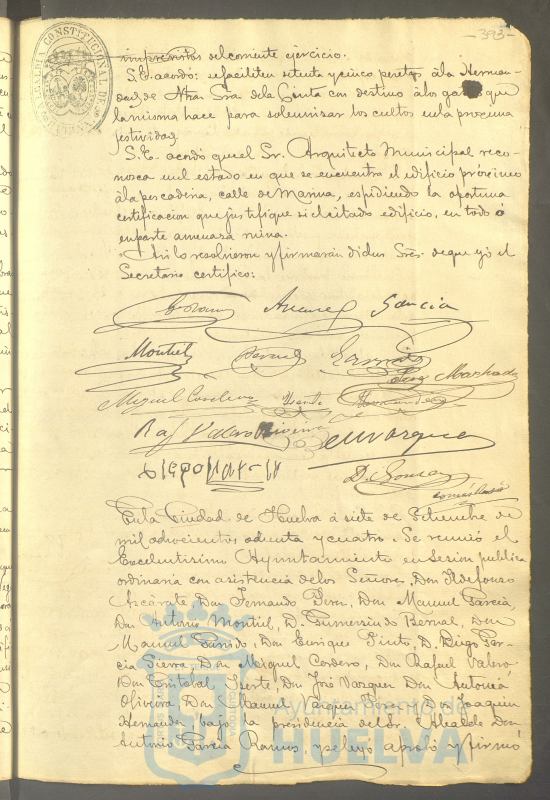 -393-
ALCALDIA CONSTITUCIONAL DE
imprevistos del corriente ejercicio.
S.E. acordó: se faciliten setenta y cinco pesetas á la Herman-
dad de Ntra. Sra. de la Cinta con destino á los gastos que
la misma hace para solemnisar los cultos en la procsima
festividad.
S.E. acordó que el Sr. Arquitecto Municipal reco-
nosca en el estado en que se encuentra el edificio prócsimo
á la pescaderia, calle de Marina, espidiendo la oportuna
certificacion que justifique si el citado edificio, en todo ó
en parte amenaza ruina.
Asi lo resolvieron y firmarán dichos Sres. de que yo el
Secretario certifico:
Alvarez Garcia
Montiel Bernal Garrido
Machado
Miguel Cordero Fuerte Hernandez
Raf Valero Oliveira E. Vazquez
Diego
D. Gomez
En la Ciudad de Huelva á siete de Setiembre de
mil ochocientos ochenta y cuatro. Se reunió el
Excelentisimo Ayuntamiento en Sesion publica
ordinaria con asistencia de los Señores, Don Ildefonso
Azcárate, Don Fernando Perez, Don Manuel Garcia,
Don Antonio Montiel, D. Gumersindo Bernal, Don
Manuel Garrido, Don Enrique Pinto, D. Diego Gar-
cia Sierra, Don Miguel Cordero, Don Rafael Valero,
Don Cristobal Fuerte, Don José Vazquez, Don Antonio
Oliveira, Don Manuel Vazquez Perez y Don Joaquin
Hernandez bajo la presidencia del Sr. Alcalde Don
Antonio Garcia Ramos, y se leyó aprobó y firmó
Ayuntamiento de
HUELVA